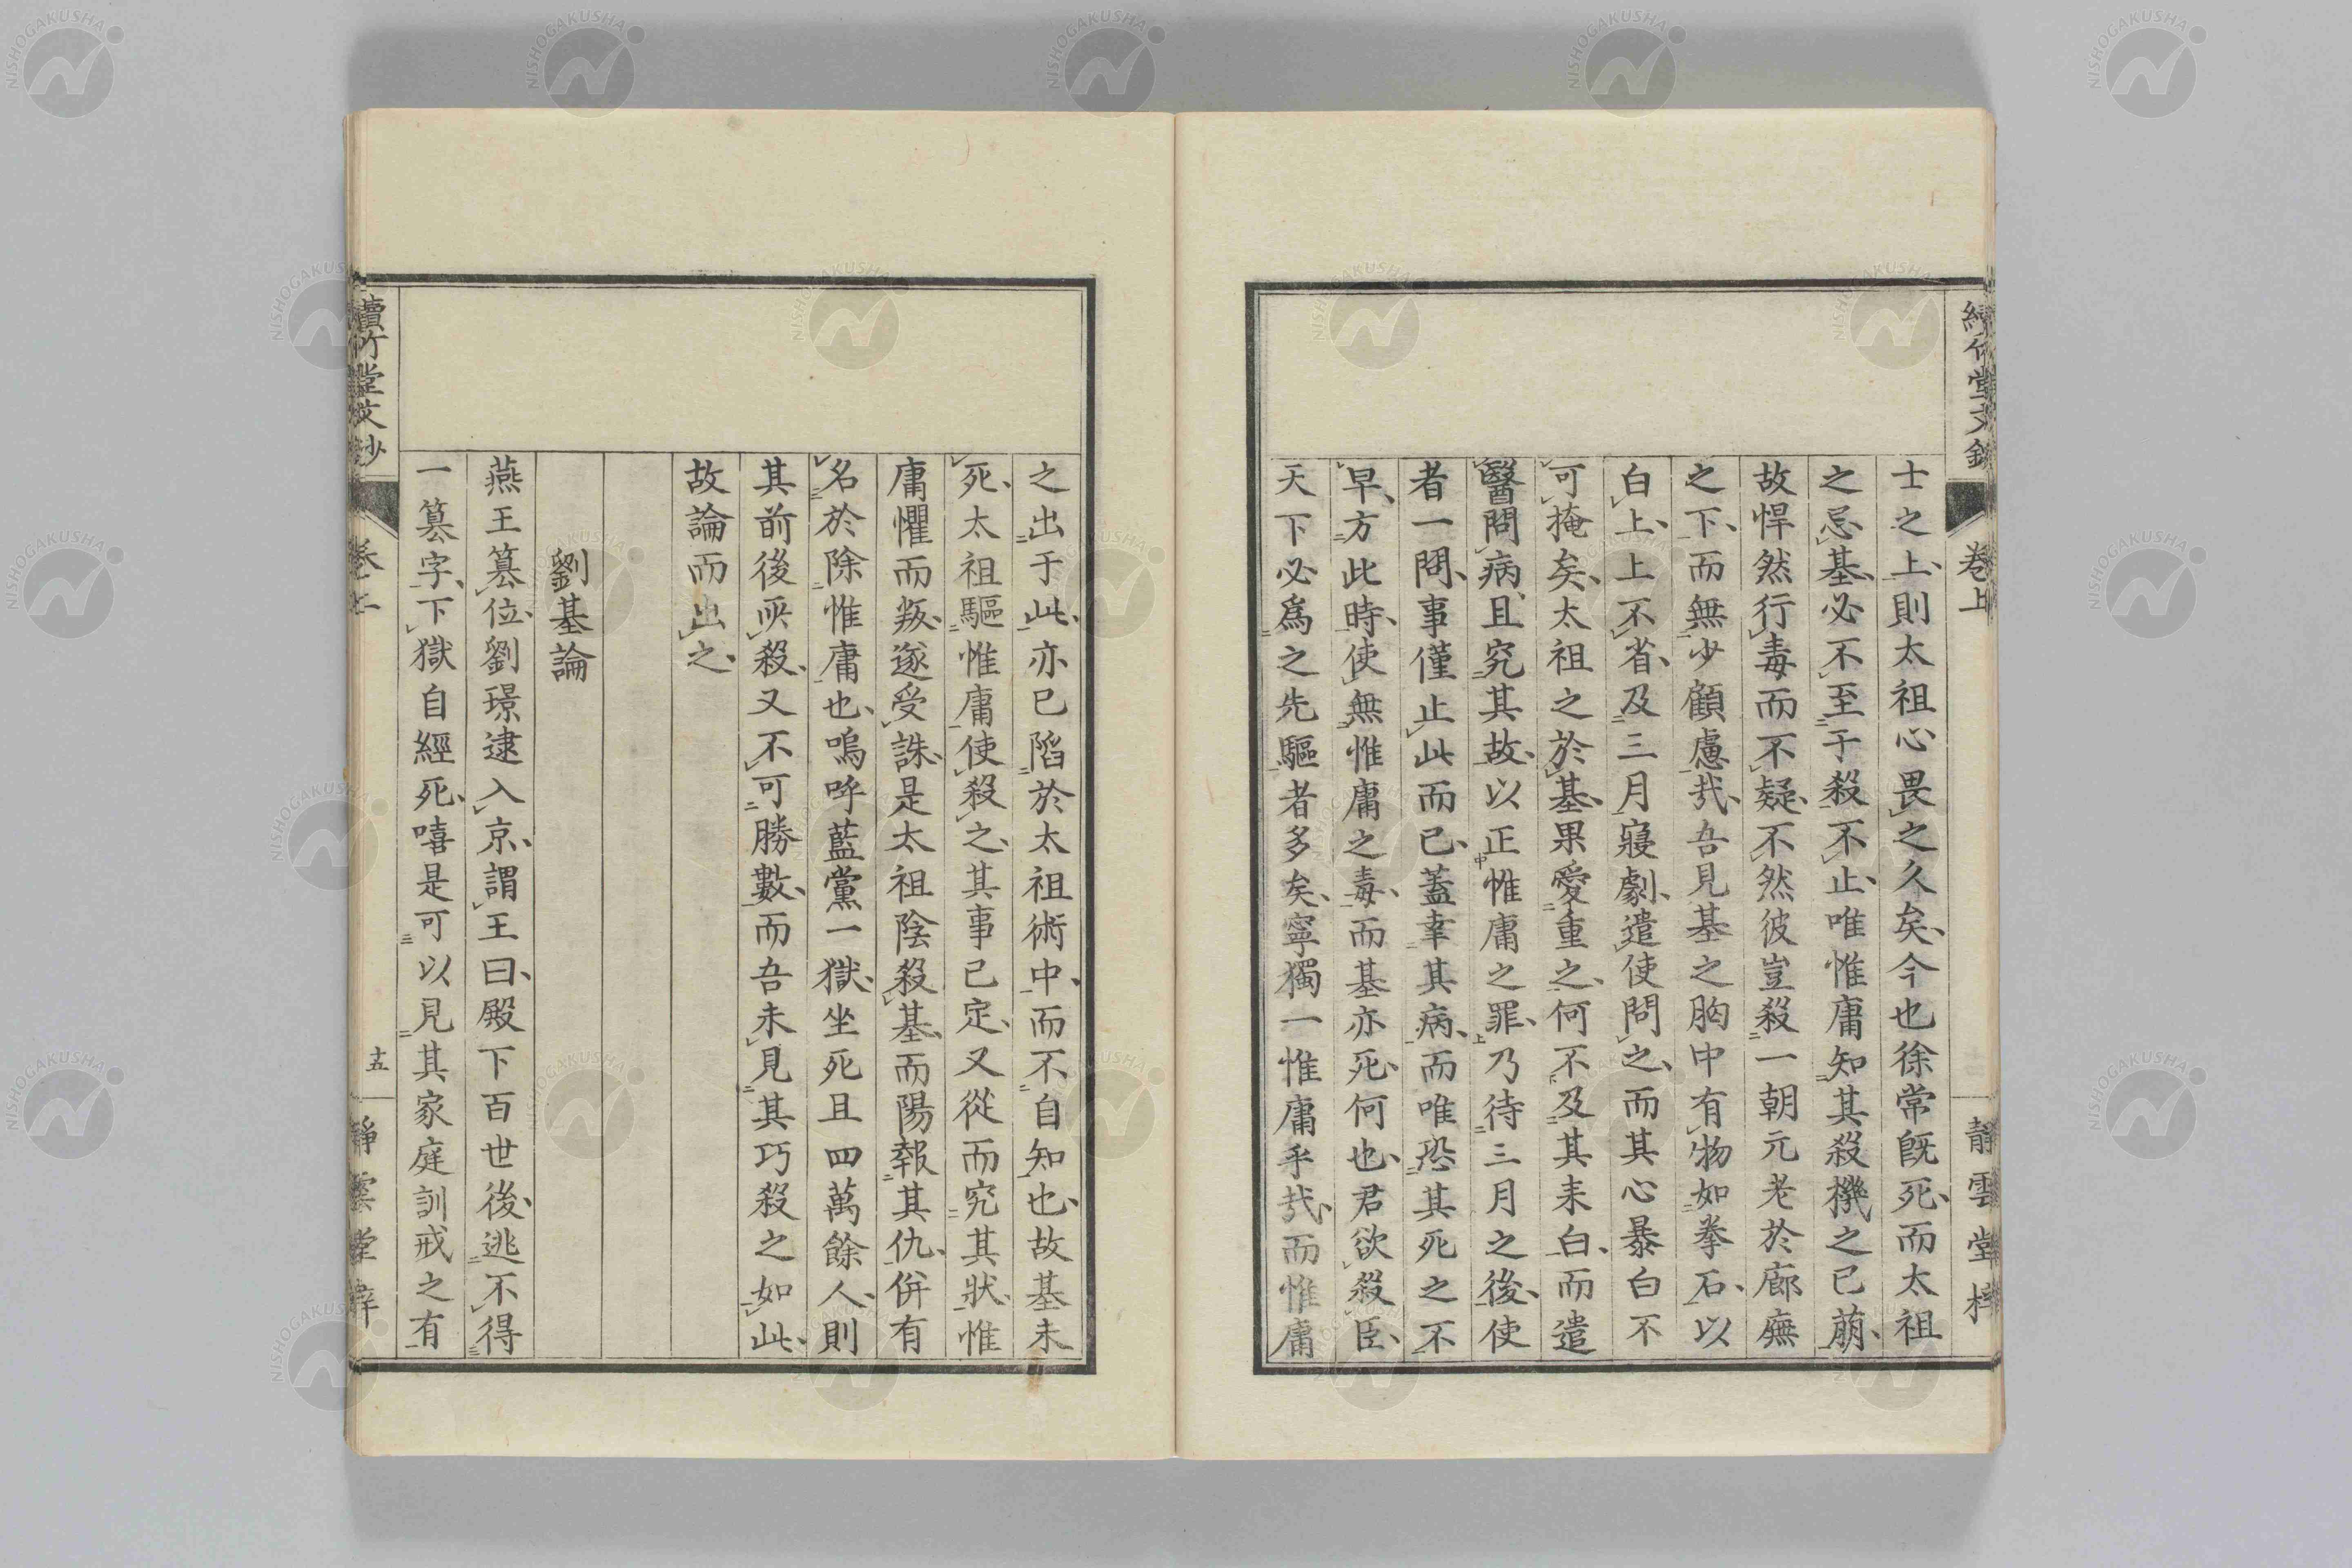 士之上則太祖心畏之久矣今也徐常既死而太祖
之忌基必不至于殺不止唯惟庸知其殺機之已萠
故悍然行毒而不疑不然彼豈殺一朝元老於廊廡
之下而無少顧慮㢤吾見基之胸中有物如拳石以
白上上不省及三月寢劇遣使問之而其心暴白不
可掩矣太祖之於基果愛重之何不及其未白而遣
醫問病且究其故以正惟庸之罪乃待三月之後使
者一問事僅止此而已蓋幸其病而唯恐其死之不
早方此時使無惟庸之毒而基亦死何也君欲殺臣
天下必爲之先驅者多矣寧獨一惟庸乎㢤而惟庸
卷上
靜雲堂梓
之出于此亦已陷於太祖術中而不自知也故基未
死太祖驅惟庸使殺之其事已定又從而究其狀惟
庸懼而叛遂受誅是太祖陰殺基而陽報其仇併有
名於除惟庸也嗚呼藍黨一獄坐死且四萬餘人則
其前後所殺又不可勝數而吾未見其巧殺之如此
故論而出之
劉基論
燕王簒位劉璟逮入京謂王曰殿下百世後逃不得
一簒字下獄自經死嘻是可以見其家庭訓戒之有
讀竹堂文鈔
十五
NISHOGAKUSHA